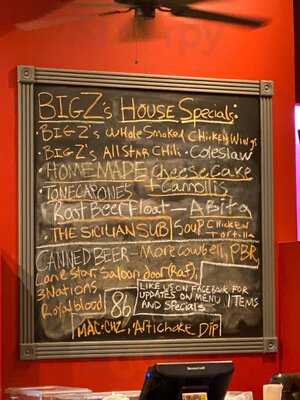 BIGZ's HOUSE Specials:
· BIGZ's WHole Smoked Chicken Wings
· BIGZ's, All STAR Chili · Coleslaw
· HOMEMADE Cheese Cake
TONECAPONIES + Cannollis
Root Beer Float — ABITA
· THE SICILIAN SUB SOUP CHICKEN Tortilla
CANNED BEER - More Cowbell, PBR,
Lone Star, Saloon door (Raf),
3 Nations
Royal blood
86
LIKE US ON FACEBOOK FOR
UPDATES ON MENU ITEMS
AND SPECIALS
MAC·CHZ, Artichoke DIP